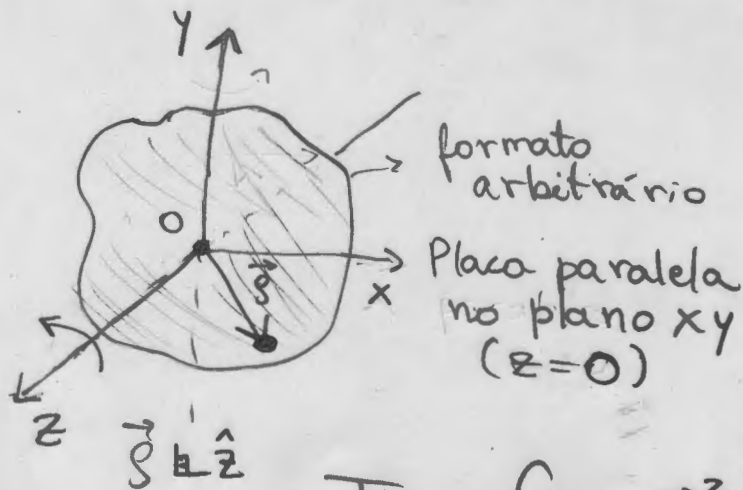 Y
formato
arbitrário
O
ρ⃗
X
Placa paralela
no plano xy
(z=0)
Z
ρ⃗ ⊥ ẑ